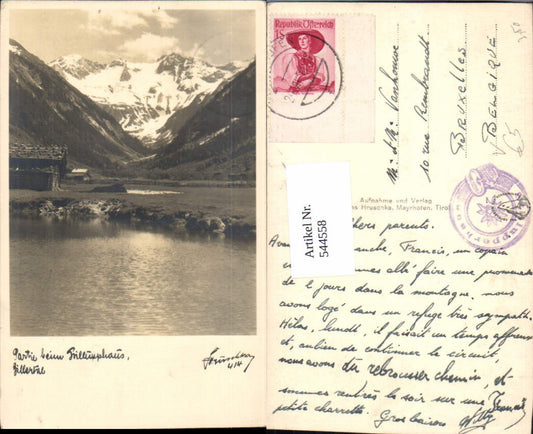 Partie beim Grillumphaus,
Zillertal
414
Republik Österreich
1S
M. & Me Vanhouwe
10 rue Rembrandt
BRUXELLES
BELGIQUE
Aufnahme und Verlag
Hruschka, Mayrhofen, Tirol
Artikel Nr.
544558
chers parents.
Avant anche, Francis, un copain
et mmes allé faire une promenade
de 2 jours dans la montagne. nous
avons logé dans un refuge très sympath.
Hélas, lundi, il faisait un temps affreux
et, au lieu de continuer le circuit,
nous avons du rebrousser chemin, et
sommes rentrés le soir sur une
petite charrette. Gros baisers Willy